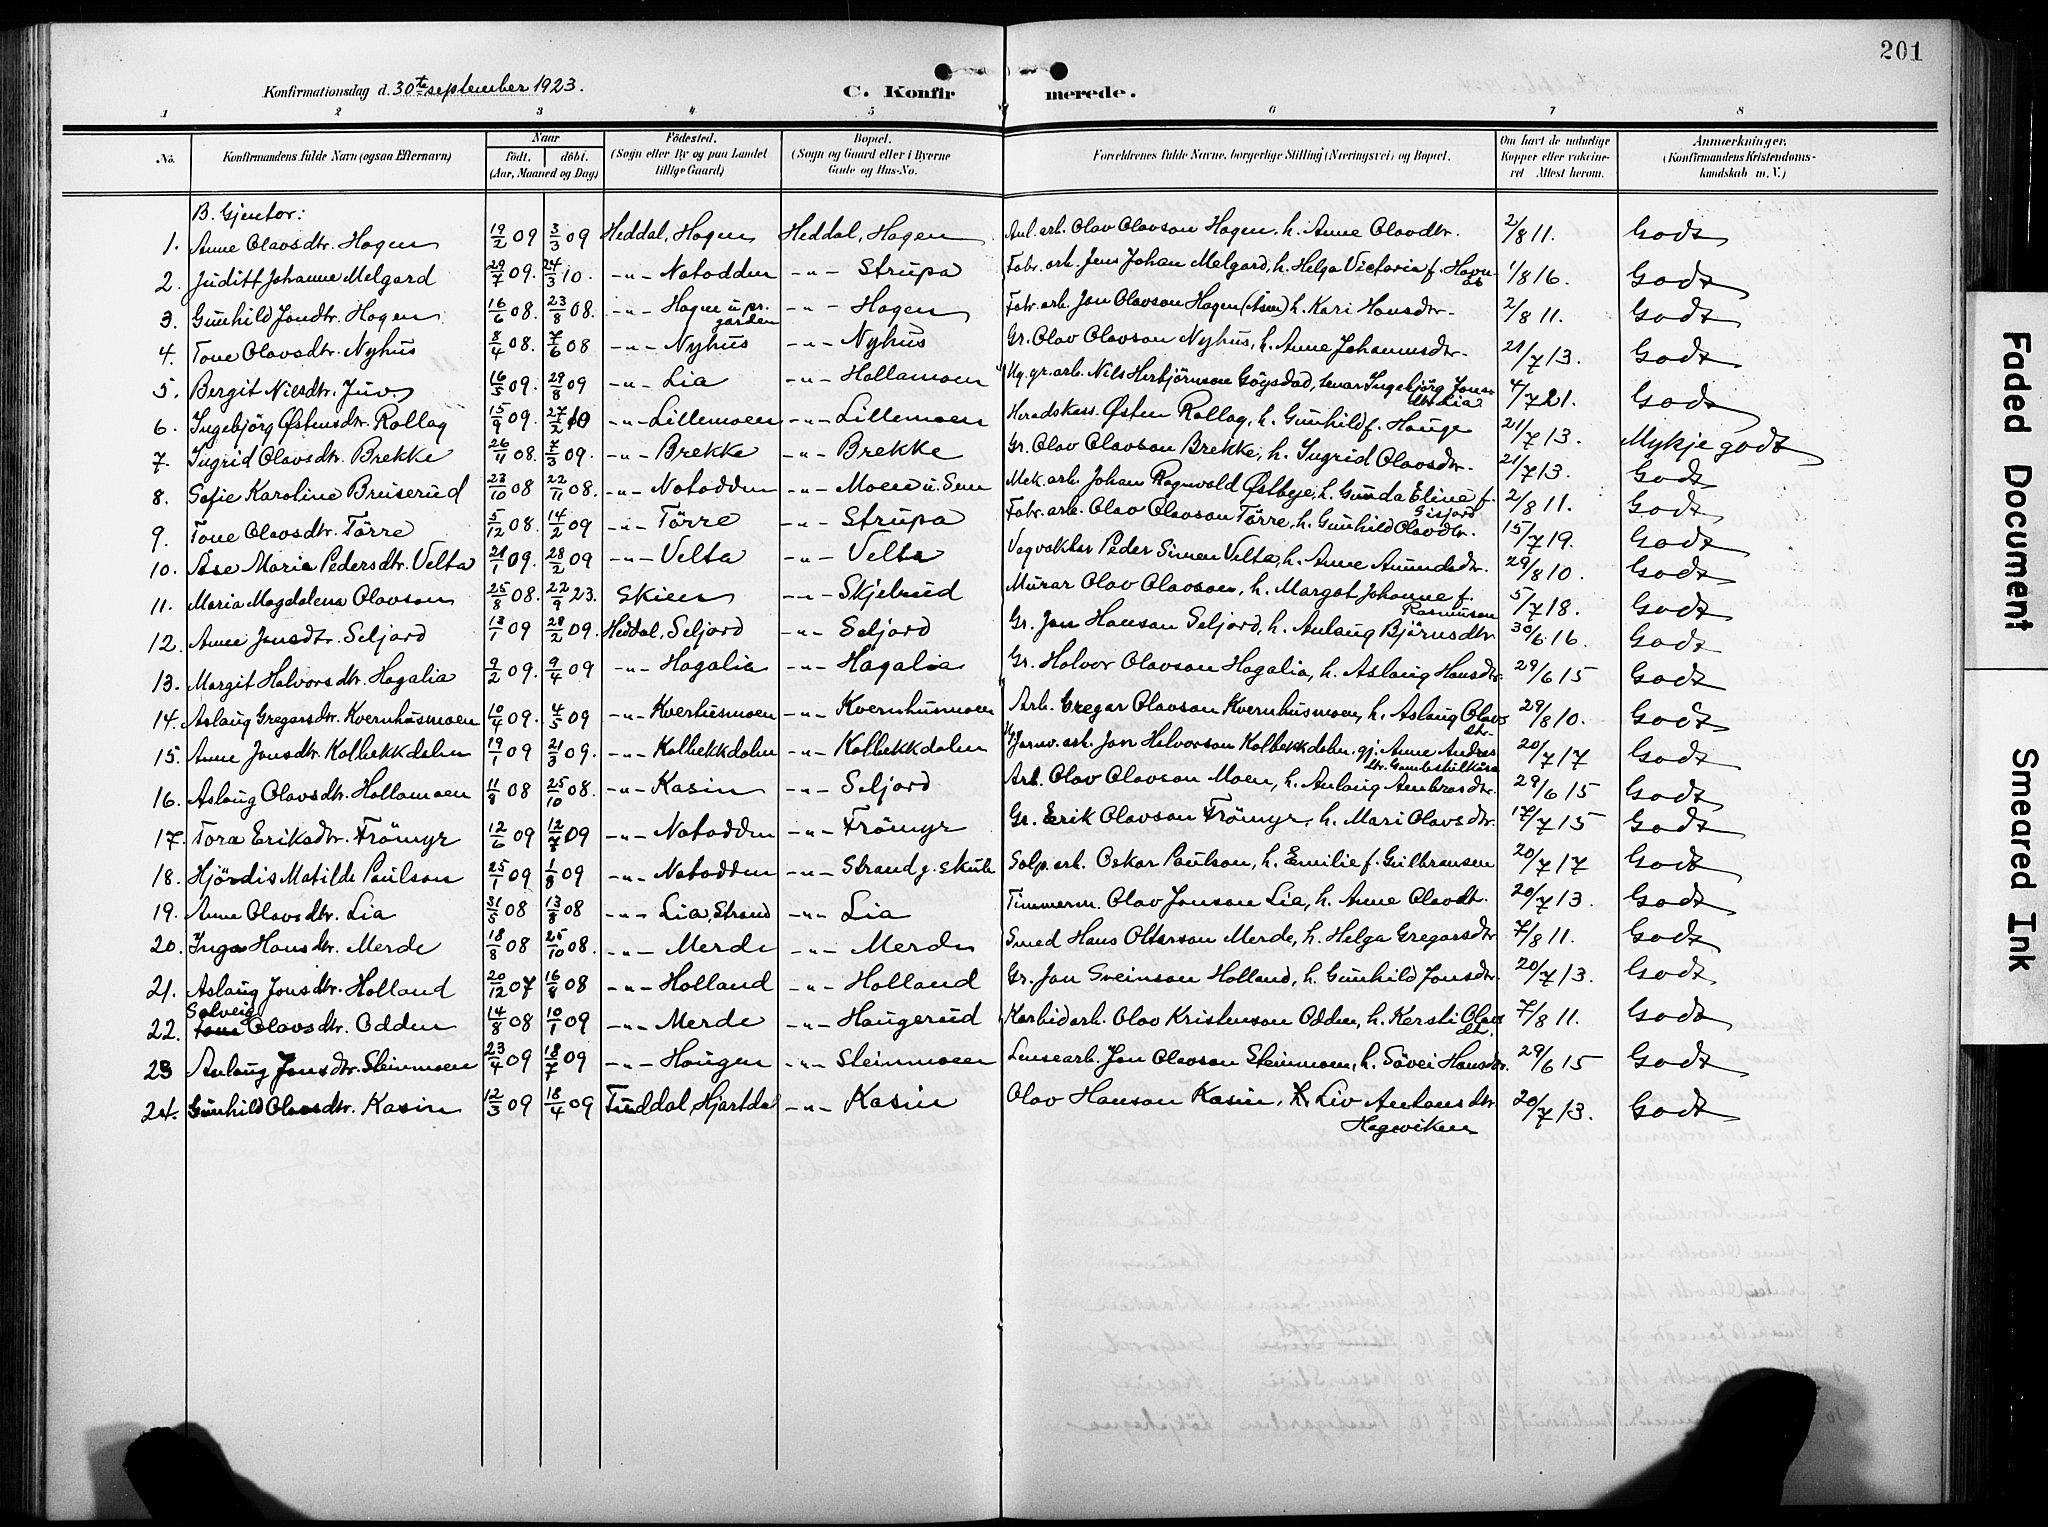 201
Konfirmationsdag d. 30te september 1923.
C. Konfirmerede.
1 2 3 4 5 6 7 8
No.
Konfirmandens fulde Navn (ogsaa Efternavn)
Naar
födt. döbt.
(Aar, Maaned og Dag)
Födested.
(Sogn eller By og paa Landet
tillige Gaard)
Bopæl.
(Sogn og Gaard eller i Byerne
Gade og Hus-No.
Forældrenes fulde Navne, borgerlige Stilling (Næringsvei) og Bopæl.
Om havt de naturlige
Kopper eller vakcine-
ret Attest herom.
Anmærkninger.
(Konfirmandens Kristendoms-
kundskab m. V.)
B. Gjentor:
1. Anne Olavsdtr. Hagen 19/2 09 3/3 09 Heddal, Hagen Heddal, Hagen Anl. arb. Olav Olavson Hagen, h. Anne Olavdtr. 2/8 11. Godt
2. Juditt Johanne Melgard 29/7 09. 24/3 10. -"- Notodden -"- Strupa Fabr. arb. Jens Johan Melgard, h. Helga Victoria f. 1/8 16. Godt
3. Gunhild Jondtr. Hagen 16/6 08. 23/8 08. -"- Hagen u. pr. garden -"- Hagen Fabr. arb. Jon Olavson Hagen (Åsen) h. Kari Hansdtr. 2/8 11. Godt
4. Tone Olavsdtr. Nyhus 8/4 08. 7/6 08 -"- Nyhus -"- Nyhus Gr. Olav Olavson Nyhus, h. Anne Johannsdtr. 21/7 13. Godt
5. Bergit Nilsdtr. Juv. 16/5 09. 29/8 09 -"- Lia -"- Hollamoen Ug. gr. arb. Nils Herbjörnson Göysdad, Ingebjörg Jons- dtr Lia 4/7 21. Godt
6. Ingebjörg Østensdtr. Rollag 15/9 09. 27/2 10 -"- Lillemoen -"- Lillemoen Heradskass. Østen Rollag, h. Gunhild f. Hauge 21/7 13. Mykje godt
7. Ingrid Olavsdtr. Brekke 26/11 08. 7/3 09. -"- Brekke -"- Brekke Gr. Olav Olavson Brekke, h. Ingrid Olavsdtr. 21/7 13. Godt
8. Sofie Karoline Bruserud 23/10 08 22/11 08. -"- Notodden -"- Moen u. Sem Mek. arb. Johan Ragnvald Østbye, h. Gunda Eline f. Gisjord 2/8 11. Godt
9. Tone Olavsdtr. Törre 5/12 08. 14/2 09 -"- Törre -"- Strupa Fabr. arb. Olav Olavson Törre, h. Gunhild Olavdtr. 15/7 19. Godt
10. Åse Marie Pedersdtr. Velta 21/1 09. 28/2 09 -"- Velta -"- Velta Vegvaktar Peder Simen Velta, h. Anne Amundsdtr. 29/8 10. Godt
11. Maria Magdalena Olavson 25/8 08. 22/9 23. Skien -"- Skjebrud Murar Olav Olavson, h. Margot Johanne f. Rasmuson 5/7 18. Godt
12. Anne Jonsdtr. Seljord 13/1 09 28/2 09. Heddal, Seljord -"- Seljord Gr. Jon Hanson Seljord, h. Anlaug Björnsdtr 30/6 16. Godt
13. Margit Halvorsdtr. Hagalia 9/2 09. 9/4 09 -"- Hagalia -"- Hagalia Gr. Halvor Olavson Hagalia, h. Aslaug Hansdtr. 29/6 15 Godt
14. Aslaug Gregarsdtr. Kvernhusmoen 10/4 09. 4/5 09 -"- Kverhusmoen -"- Kvernhusmoen Arb. Gregar Olavson Kvernhusmoen, h. Aslaug Olavs dtr. 29/8 10. Godt
15. Anne Jonsdtr. Kolbekkdalen 19/1 09 21/3 09. -"- Kolbekkdalen -"- Kolbekkdalen Ug. Jarnv. arb. Jon Halvorson Kolbekkdalen, gj. Anne Andres dtr. 20/7 17 Godt
16. Aslaug Olavsdtr. Hollamoen 11/8 08 25/10 08. -"- Kasin -"- Seljord Arb. Olav Olavson Moen, h. Anlaug Ambrosdtr. 29/6 15 Godt
17. Tora Eriksdtr. Frömyr 12/6 09 12/8 09 -"- Notodden -"- Frömyr Gr. Erik Olavson Frömyr, h. Mari Olavsdtr. 17/7 15 Godt
18. Hjördis Matilde Paulson 25/1 09 1/8 09 -"- Notodden -"- Strand g. skule Salp. arb. Oskar Paulson, h. Emilie f. Gulbransen 20/7 17 Godt
19. Anne Olavsdtr. Lia 31/5 08 13/8 08 -"- Lia, Strand -"- Lia Timmerm. Olav Jonson Lia, h. Anne Olavdt. 20/7 13. Godt
20. Inga Hansdtr. Merde 18/8 08 25/10 08. -"- Merde -"- Merde Smed Hans Olterson Merde, h. Helga Gregarsdtr 7/8 11. Godt
21. Aslaug Jonsdtr. Holland 20/12 07 16/8 08 -"- Holland -"- Holland Gr. Jon Sveinson Holland, h. Gunhild Jonsdtr. 20/7 13. Godt
22. Solveig Olavsdtr. Odden 14/8 08 10/1 09 -"- Merde -"- Haugerud Karbidarb. Olav Kristenson Odden, h. Kersti Olavs dt. 7/8 11. Godt
23 Anlaug Jonsdtr. Steinmoen 23/4 09 18/7 09 -"- Haugen -"- Steinmoen Lensearb. Jon Olavson Steinmoen, h. Sövei Hansdtr. 29/6 15 Godt
24. Gunhild Olavsdtr. Kasin 12/3 09 18/4 09 Tuddal, Hjartdal -"- Kasin Olav Hanson Kasin, h. Liv Antonsdtr Hageviken 20/7 13. Godt
Faded Document
Smeared Ink